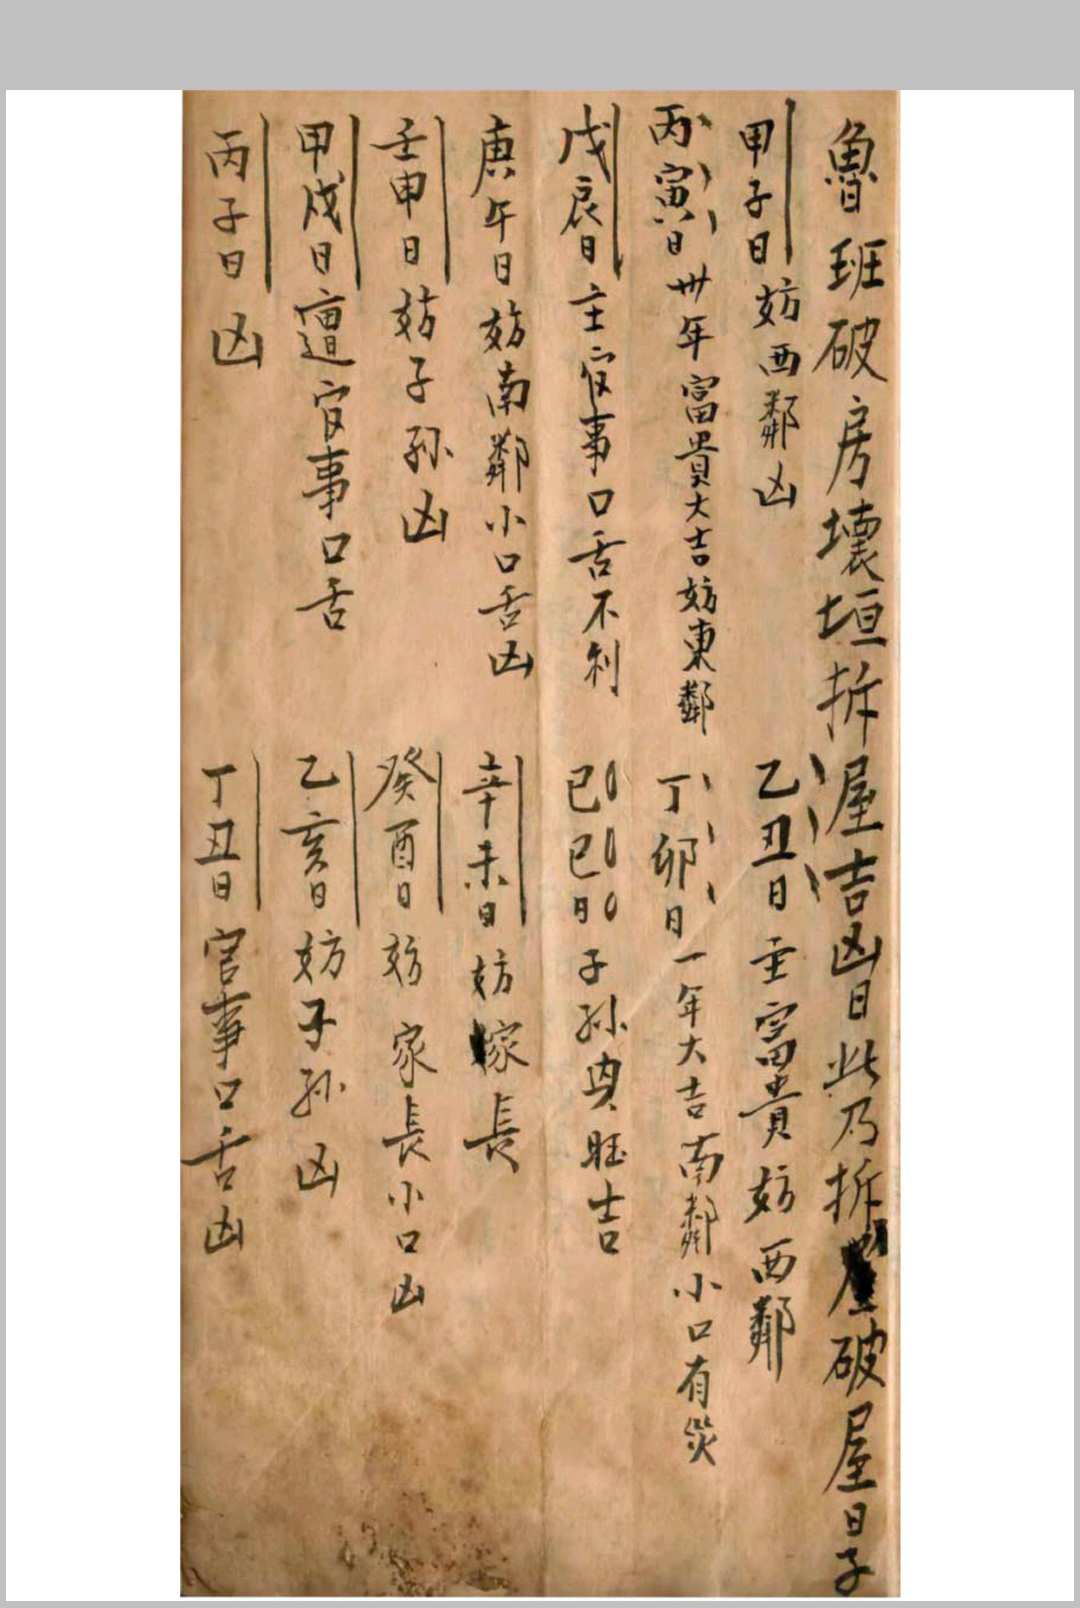 魯班破房壞垣拆屋吉凶日此乃拆屋破屋日子
甲子日妨西鄰凶
乙丑日主富貴妨西鄰
丙寅日卅年富貴大吉妨東鄰
丁卯日一年大吉南鄰小口有災
戊辰日主官事口舌不利
己巳日子孫興旺吉
庚午日妨南鄰小口舌凶
辛未日妨家長
壬申日妨子孫凶
癸酉日妨家長小口凶
甲戌日遭官事口舌
乙亥日妨子孫凶
丙子日凶
丁丑日官事口舌凶